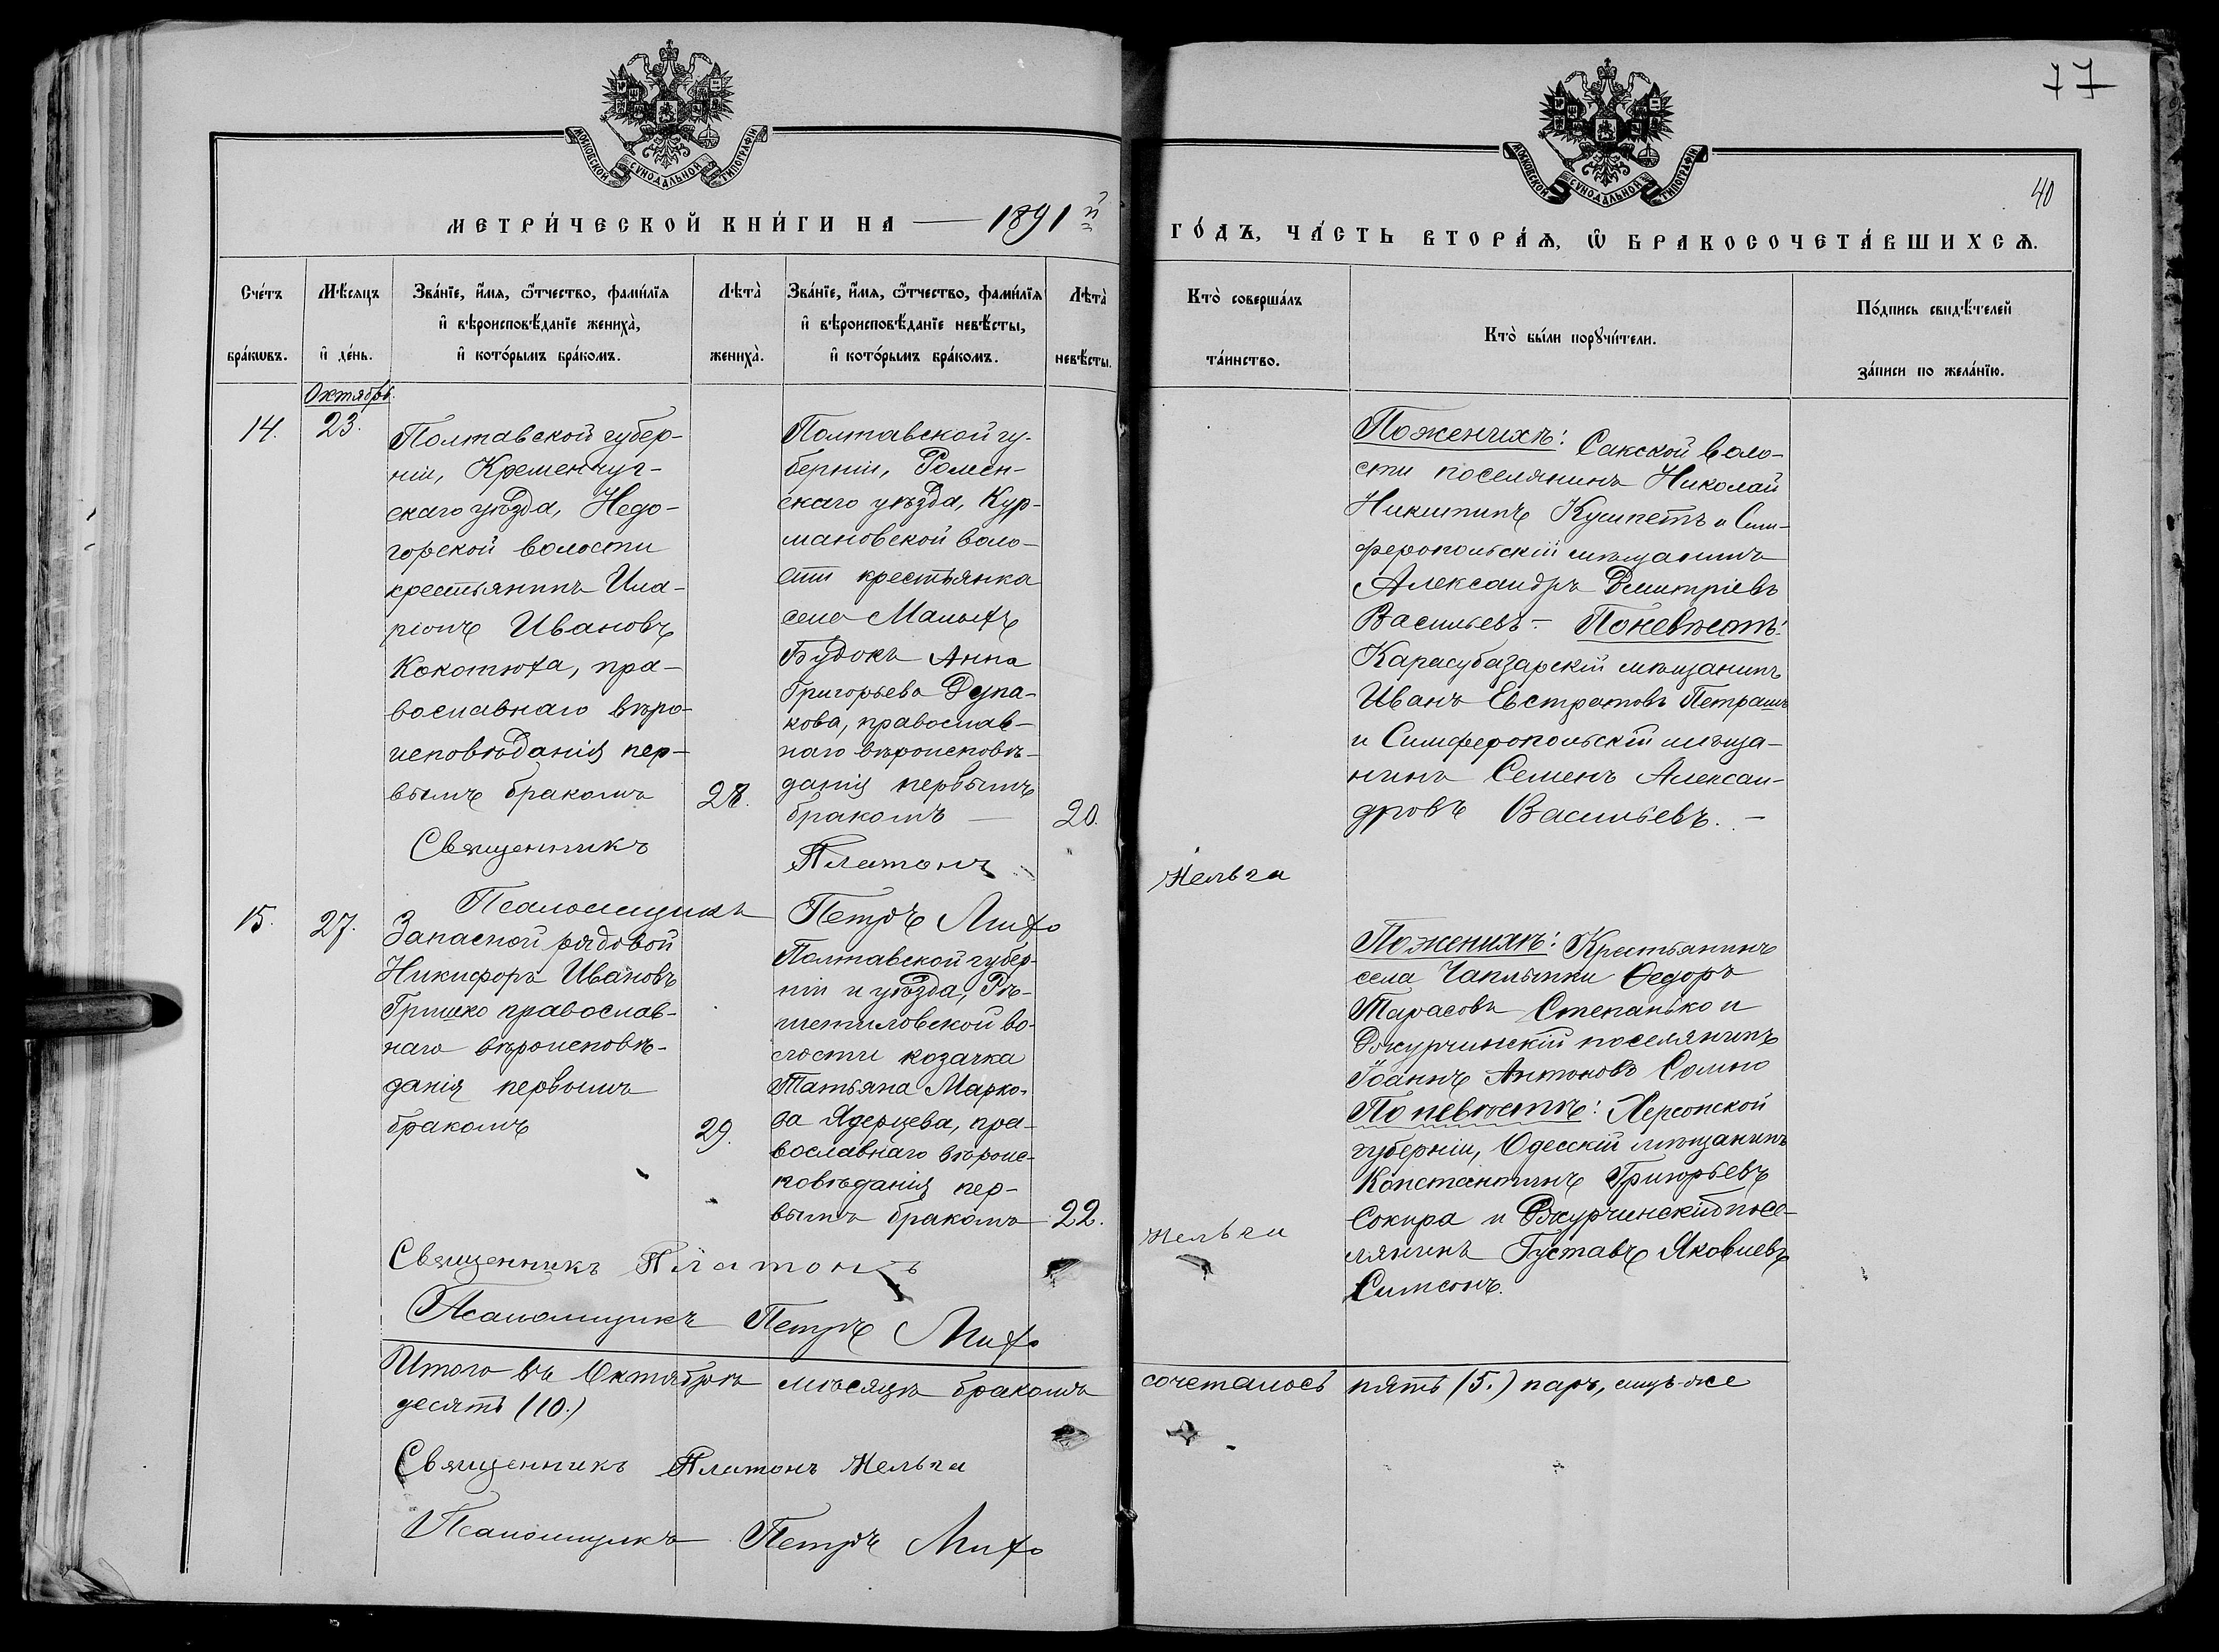 77
40
МОСКОВСКОЙ СѴНОДАЛЬНОЙ ТИПОГРАФІИ
МОСКОВСКОЙ СѴНОДАЛЬНОЙ ТИПОГРАФІИ
МЕТРИ́ЧЕСКОЙ КНИ́ГИ НА — 1891й
ГО́ДЪ, ЧА́СТЬ ВТОРА́Ѧ, Ѿ БРАКОСОЧЕТА́ВШИХСѦ.
Сче́тъ бра́кѡвъ.
Мѣ́сяцъ и҆ де́нь.
Зва́нїе, и҆́мя, ѻ҆́тчество, фами́лїя
и҆ вѣроисповѣ́данїе жениха̀,
и҆ кото́рымъ бра́комъ.
Лѣта̀ жениха̀.
Зва́нїе, и҆́мя, ѻ҆́тчество, фами́лїя
и҆ вѣроисповѣ́данїе невѣ́сты,
и҆ кото́рымъ бра́комъ.
Лѣта̀ невѣ́сты.
Кто̀ соверша́лъ
та́инство.
Кто̀ бы́ли порꙋчи́тели.
По́дпись свидѣ́телей
за́писи по жела́нїю.
Октябрь.
14.
23.
Полтавской губер-
ніи, Кременчуг-
скаго уѣзда, Недо-
горской волости
крестьянинъ Ила-
ріонъ Ивановъ
Кокотюха, пра-
вославнаго вѣро-
исповѣданія пер-
вымъ бракомъ
28.
Полтавской гу-
берніи, Ромен-
скаго уѣзда, Кур-
мановской воло-
сти крестьянка
села Малыхъ
Будокъ Анна
Григорьева Дупа-
кова, православ-
наго вѣроисповѣ-
данія первымъ
бракомъ —
20.
Поженихѣ: Сакской воло-
сти поселянинъ Николай
Никитинъ Кушпетъ и Сим-
феропольскій мѣщанинъ
Александръ Дмитріевъ
Васильевъ. — Поневѣстѣ:
Карасубазарскій мѣщанинъ
Иванъ Евстратовъ Петрашъ
и Симферопольскій мѣща-
нинъ Семенъ Алексан-
дровъ Васильевъ. —
Священникъ Платонъ
Псаломщикъ Петръ Михо
15.
27.
Запасной рядовой
Никифоръ Ивановъ
Гришко православ-
наго вѣроисповѣ-
данія первымъ
бракомъ
29.
Полтавской губер-
ніи и уѣзда, Рѣ-
шетиловской во-
лости козачка
Татьяна Марко-
ва Ядерцева, пра-
вославнаго вѣроис-
повѣданія пер-
вымъ бракомъ
22.
Поженихѣ: Крестьянинъ
села Чаплынки Ѳедоръ
Тарасовъ Степанько и
Джурчинскій поселянинъ
Іоаннъ Антоновъ
По невѣстѣ: Херсонской
губерніи, Одесскій мѣщанинъ
Константинъ Григорьевъ
Сокира и Джурчинскій посе-
лянинъ Густавъ Яковлевъ
Симсонъ.
Священникъ Платонъ
Псаломщикъ Петръ Михо
Итого въ Октябрѣ мѣсяцѣ бракомъ сочеталось пять (5.) паръ, лицъ-же
десять (10.)
Священникъ Платонъ
Псаломщикъ Петръ Михо